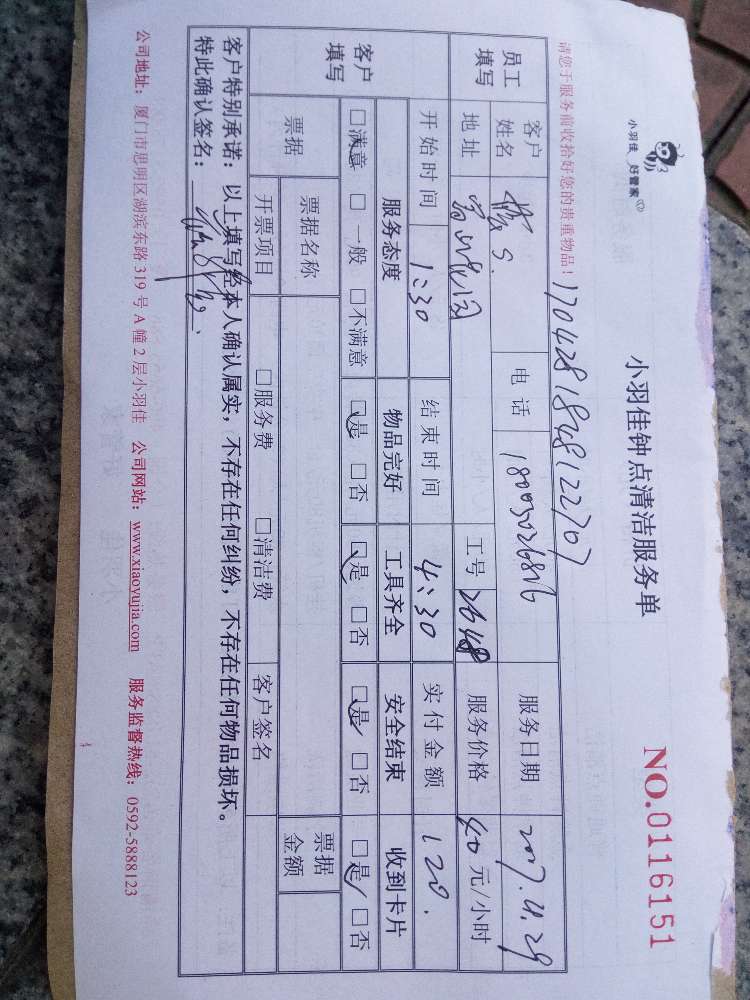 小羽佳 好管家
小羽佳钟点清洁服务单
NO.0116151
请您于服务前收拾好您的贵重物品!
员工填写 客户姓名 电话 18005026816 服务日期 2017.4.29
地址 工号 2648 服务价格 40 元/小时
客户填写 开始时间 1:30 结束时间 4:30 实付金额 120.
服务态度 物品完好 工具齐全 安全结束 收到卡片
□满意 □一般 □不满意 □是 □否 □是 □否 □是 □否 □是 □否
票据 票据名称 票据金额
开票项目 □服务费 □清洁费 客户签名
客户特别承诺:以上填写经本人确认属实,不存在任何纠纷,不存在任何物品损坏。
特此确认签名:
公司地址:厦门市思明区湖滨东路 319 号 A 幢 2 层小羽佳 公司网站:www.xiaoyujia.com 服务监督热线:0592-5888123